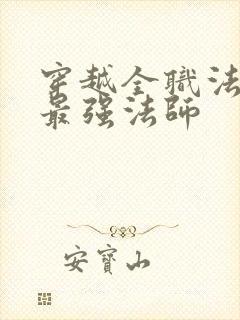 穿越全職法
最强法師
安寶山